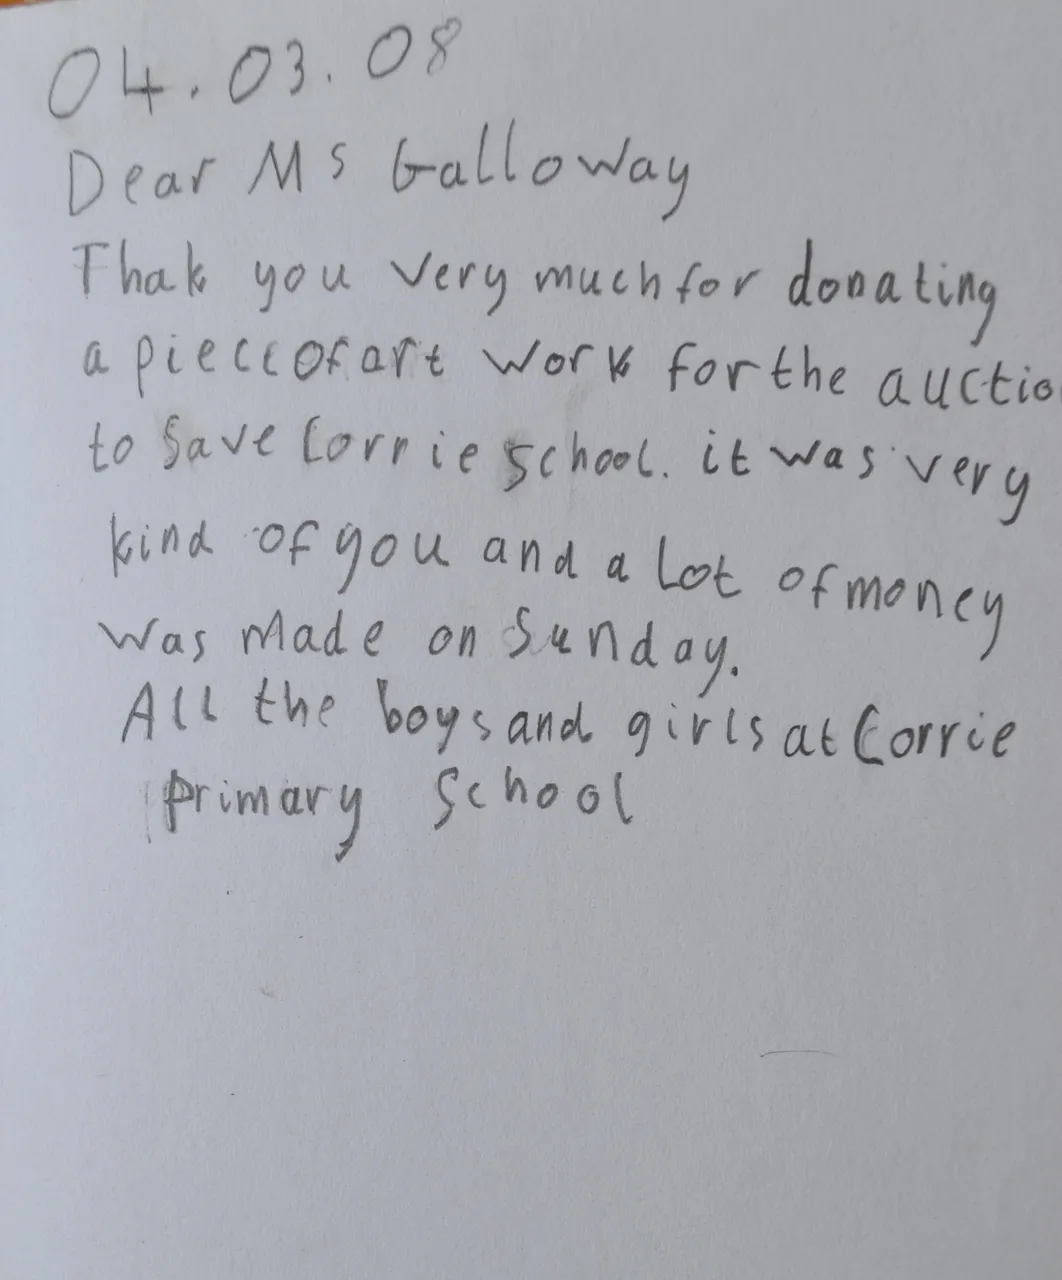 04.03.08
Dear Ms Galloway
Thak you very much for donating
a piece of art work for the auctio
to save Corrie school. it was very
kind of you and a lot of money
was made on Sunday.
All the boys and girls at Corrie
primary School